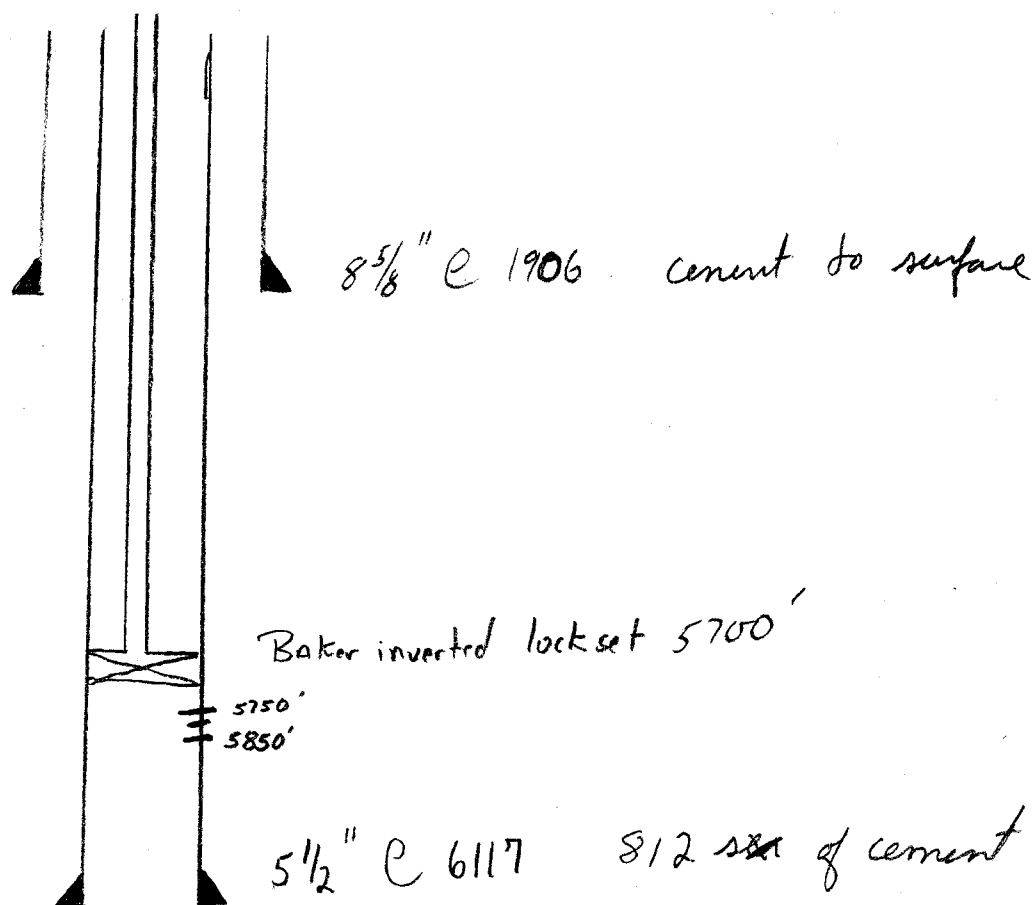 8 5/8" @ 1906 cement to surface
Baker inverted lockset 5700'
5750'
5850'
5 1/2" @ 6117 812 sx of cement